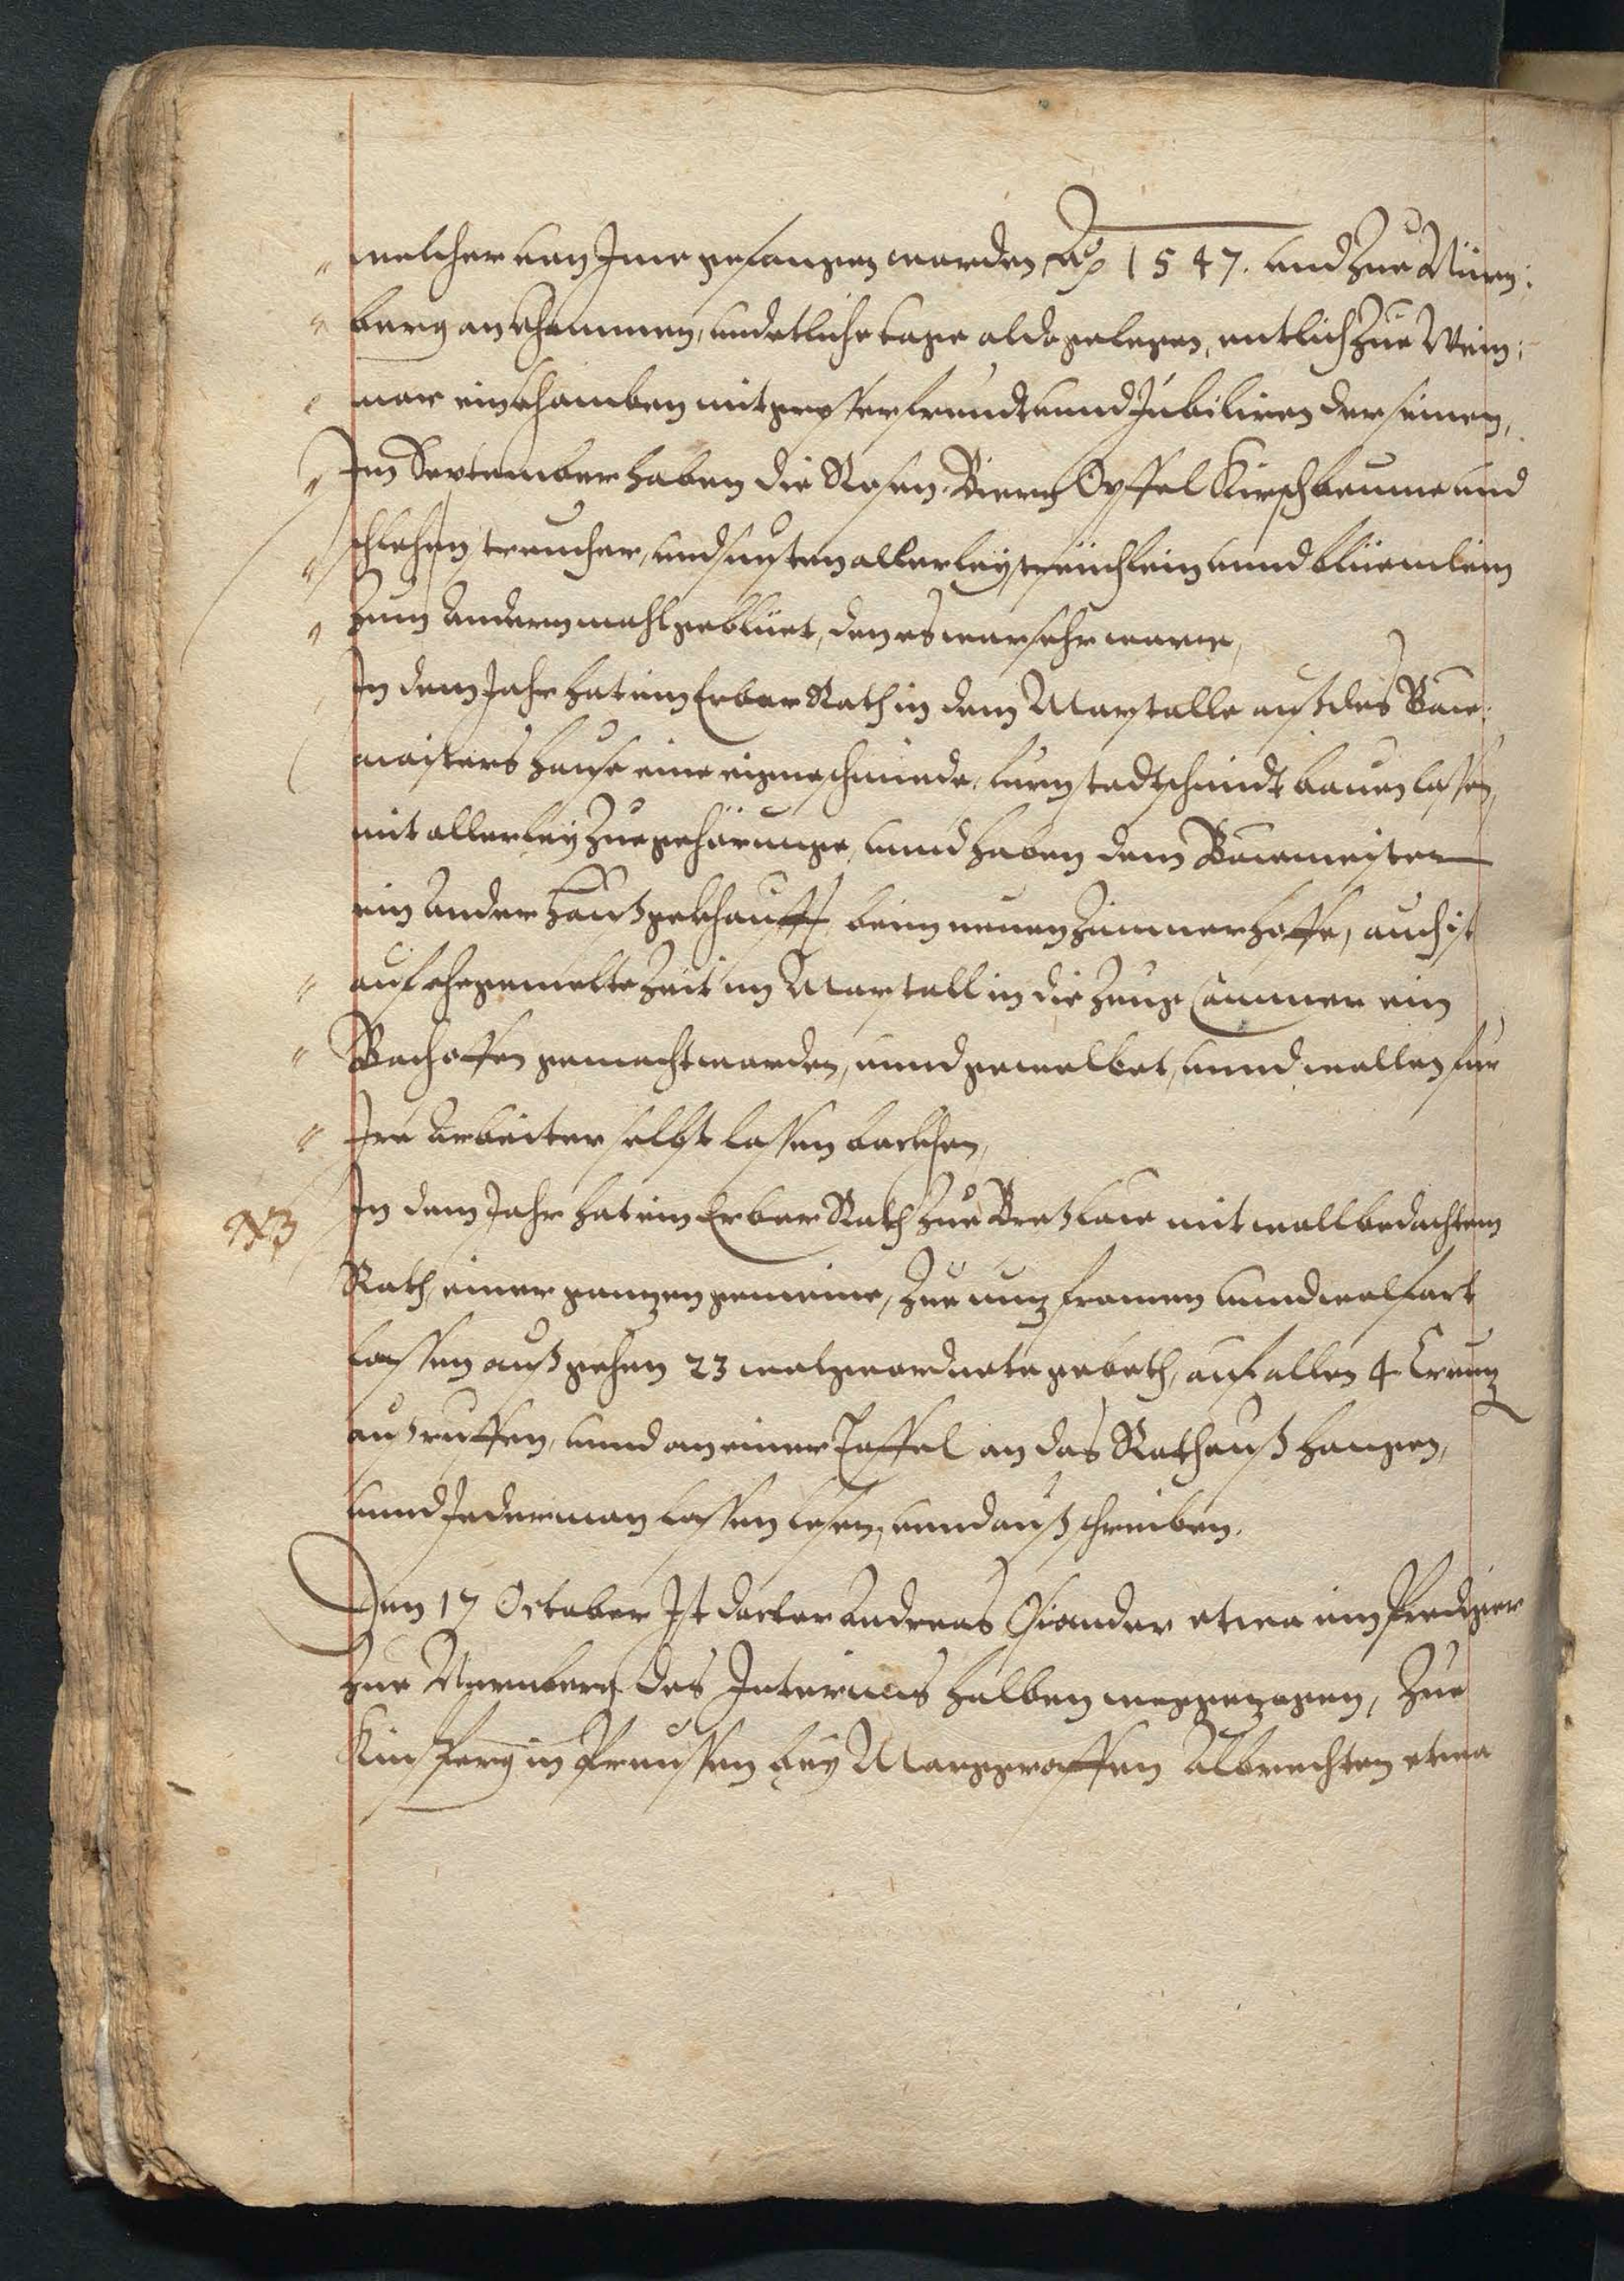 welcher von Ime gefangen worden Ao 1547. und zue Nürm:
berg ankhommen, und etliche tage alda gelegen, entlich zue Weim:
mar einkhomben mit grosser freudt unnd Jubiliren der seinen,
Im September haben die Rosen, Biern Opffel Kirschbeume und
schlehen streucher, und sunsten allerley streüchlein unnd blüemlein
zum andern mahl geblüet, den es war sehr warm,
In dem Jahr hat ein Erbar Rath in dem Marstalle auß des Baw:
maisters hause eine eigne schmiede, sammt stadtschmidt bauen lassen,
mit allerley Zuegehörunge, unnd haben dem Bawmeister
ein ander hauß gekhaufft beim neuen Zimmerhoffe, auch ist
auf ehegemelte Zeit im Marstall in die Zeug Cammer ein
Bachoffen gemacht worden, unnd gewelbet, unnd wollen fur
Ire Arbeiter selbst lassen backhen,
NB
In dem Jahr hat ein Erbar Rath zue Breßlaw mit wollbedachtem
Rath, einer ganzen gemeine, zue nuz fromen unnd wolfart
lassen auß gehen 23 wolgeordnete geboth, auf allen 4 Creuz
außruffen, unnd an einer Taffel an das Rathauß hangen,
unnd Jederman lassen lesen, unnd auß schreiben.
Den 17 October Ist doctor Andreas Osiander etwa ein Prediger
zue Nurmberg des Interims halben weggezogen, Zue
Kinsperg in Preussen bey Marggraffen Albrechten etwa